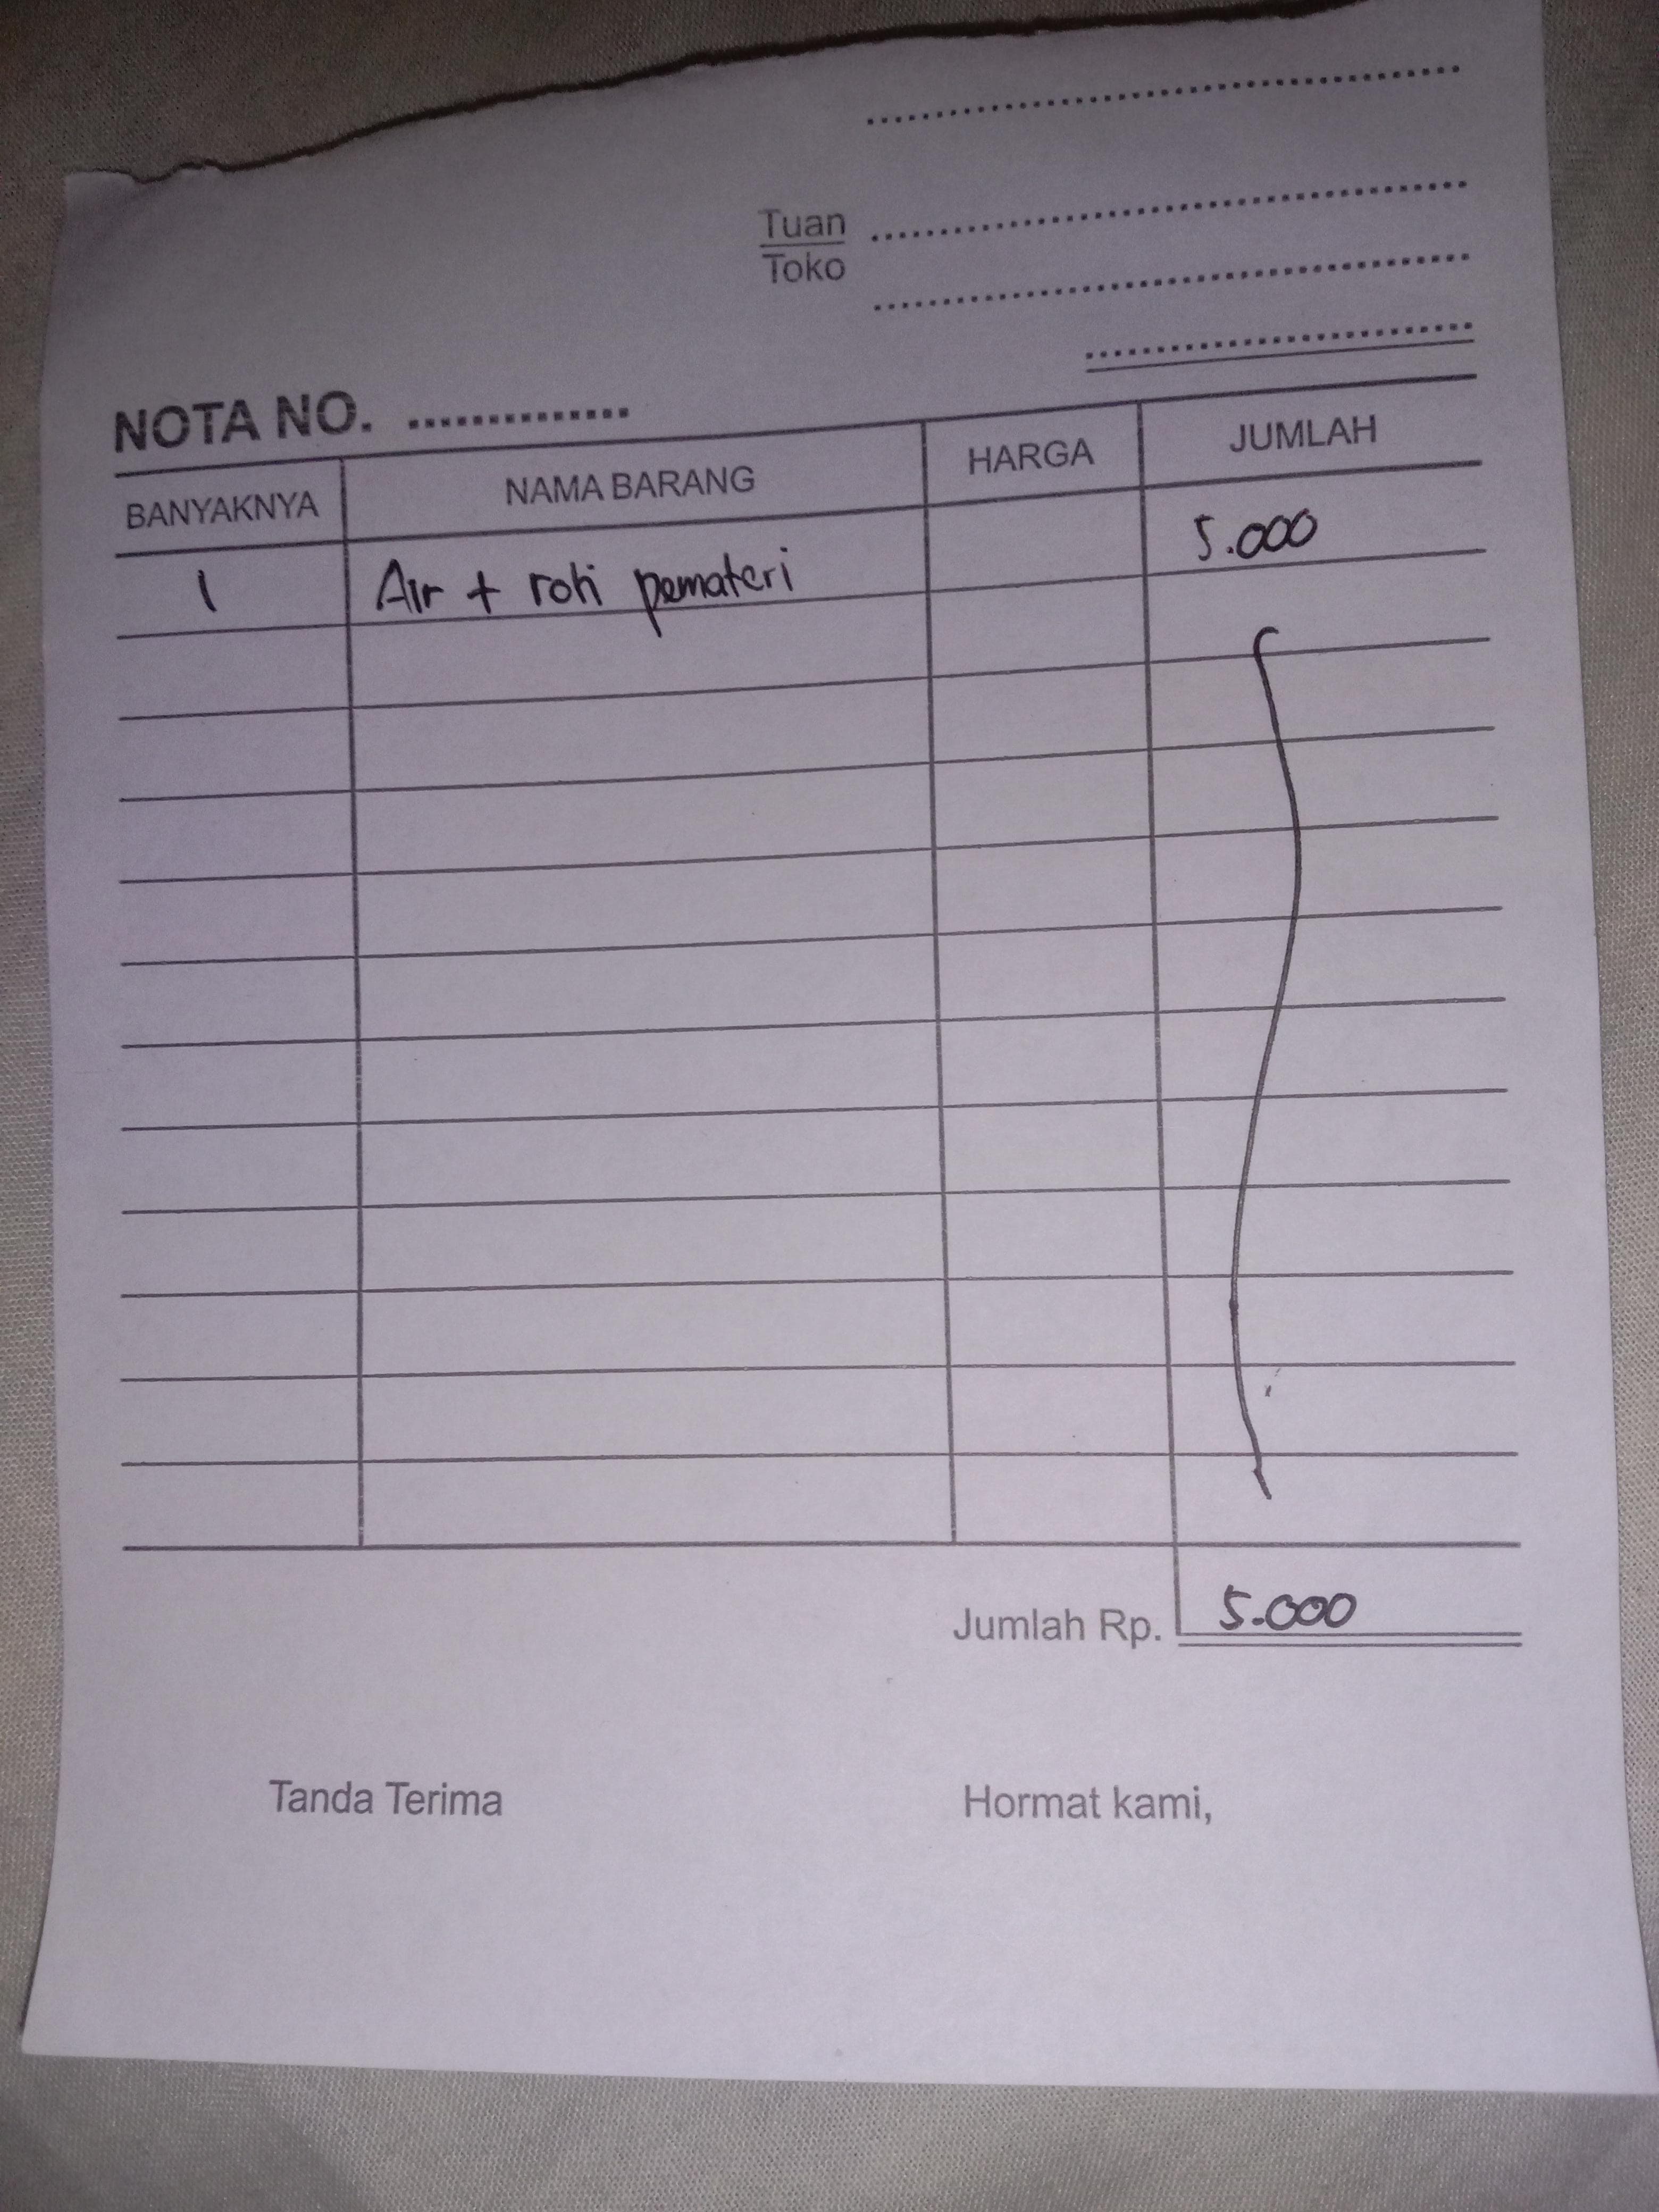 Tuan
Toko
NOTA NO. ..............
BANYAKNYA NAMA BARANG HARGA JUMLAH
1 Air + roti pemateri 5.000
Jumlah Rp. 5.000
Tanda Terima Hormat kami,